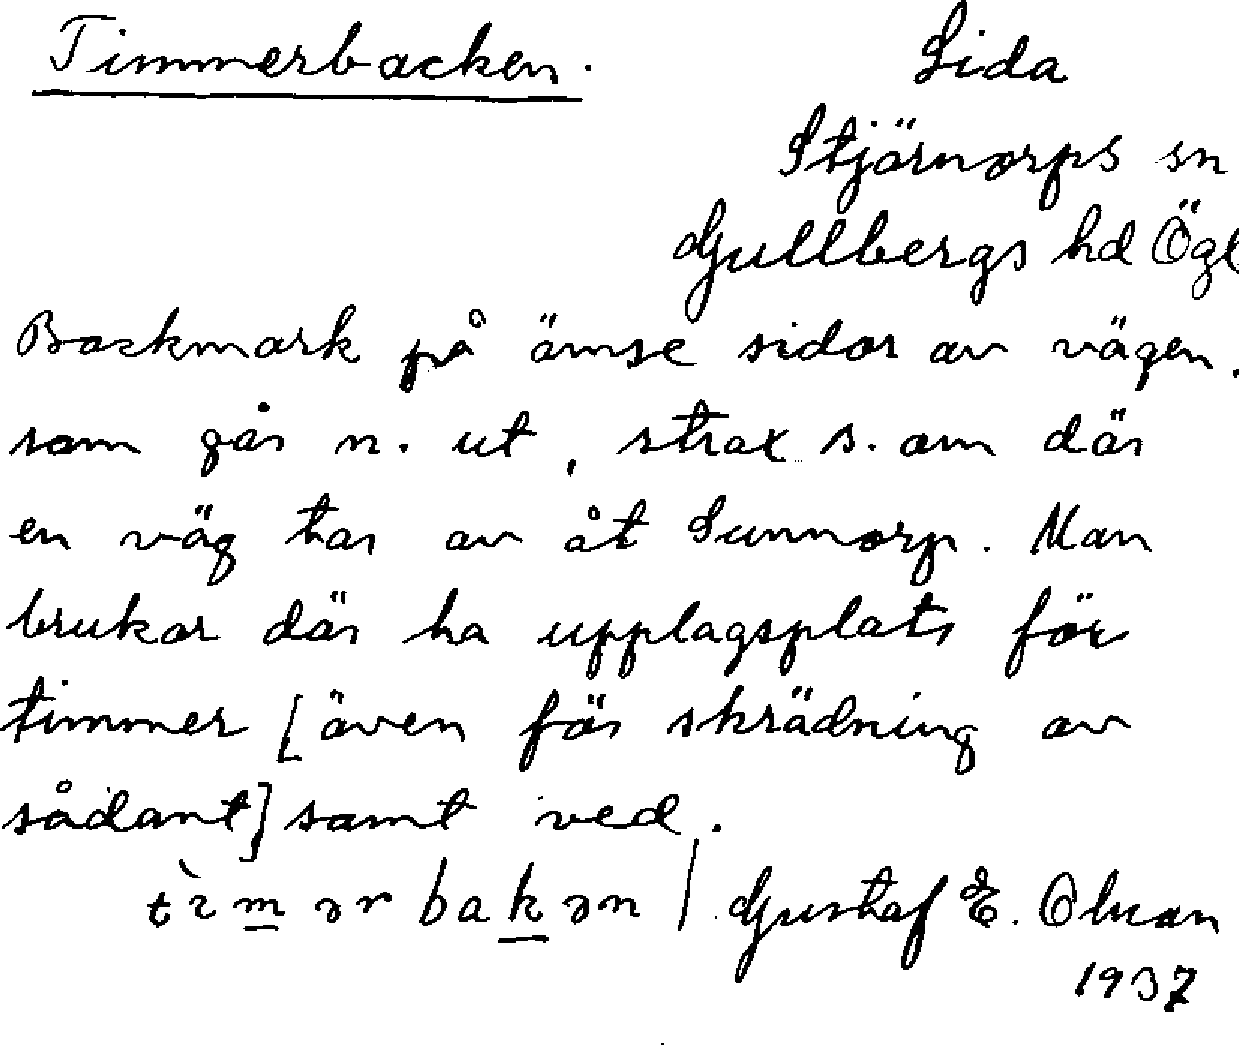 Timmerbacken.
Lida
Stjärnorps sn
Gullbergs hd Ögl
Backmark på ömse sidor av vägen,
som går n. ut, strax s. om där
en väg tar av åt Sunnorp. Man
brukar där ha upplagsplats för
timmer [även för skrädning av
sådant] samt ved.
tìmərbakən | Gustaf E. Olsson
1937